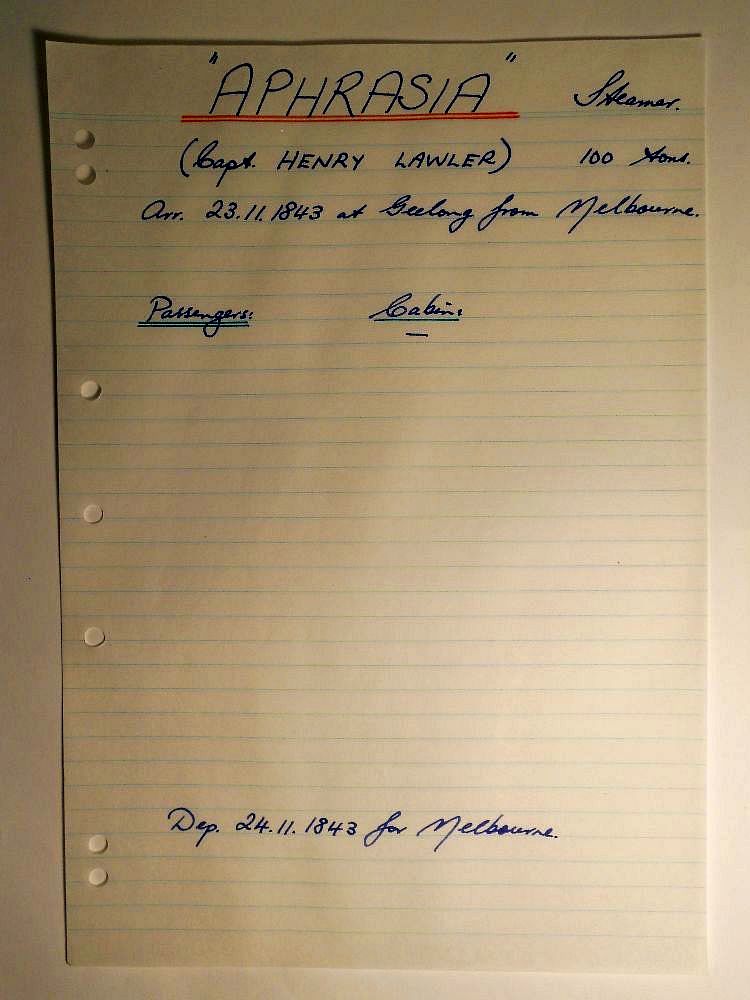 "APHRASIA" Steamer.
(Capt. HENRY LAWLER) 100 tons.
Arr. 23.11.1843 at Geelong from Melbourne.
Passengers: Cabin:
—
Dep. 24.11.1843 for Melbourne.